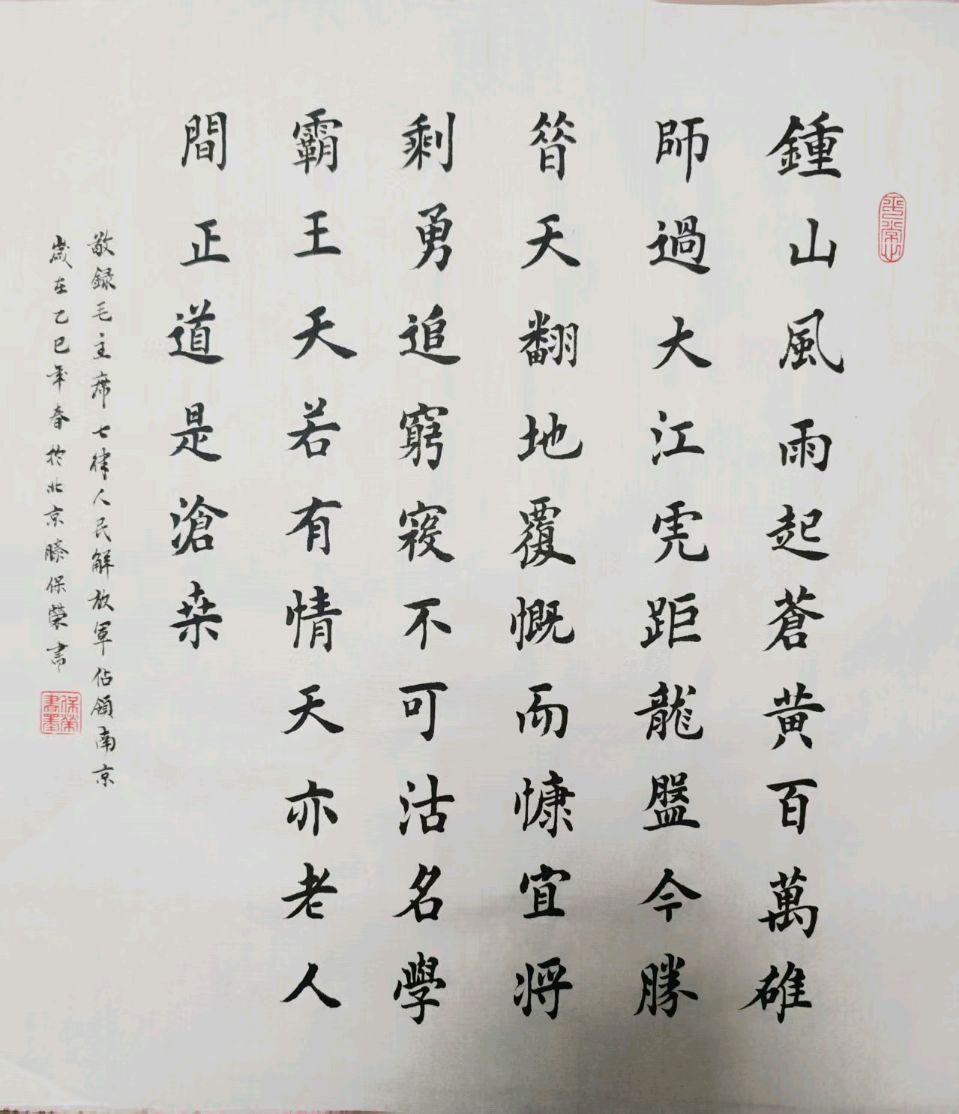 平常心
鍾山風雨起蒼黃百萬雄
師過大江虎距龍盤今勝
昔天翻地覆慨而慷宜將
剩勇追窮寇不可沽名學
霸王天若有情天亦老人
間正道是滄桒
敬録毛主席七律人民解放軍佔領南京
歲在乙巳年春於北京滕保榮書
保榮書墨